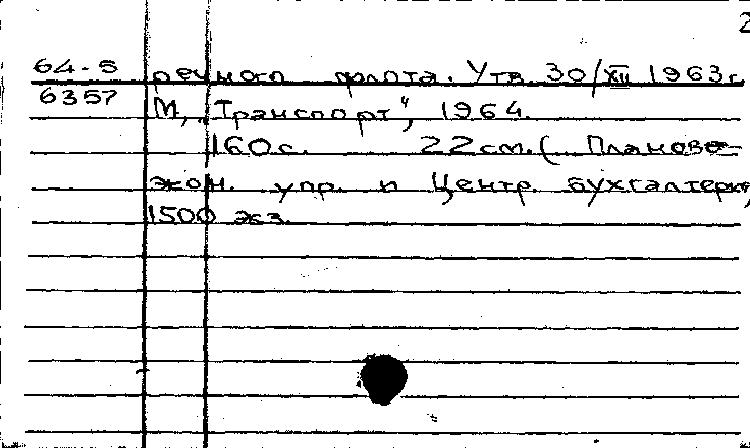 2
64-5 речного флота. Утв. 30/XII 1963г.
6357 М., „Транспорт", 1964.
160с. 22см. ( Планово-
экон. упр. и Центр. бухгалтерия)
1500 экз.